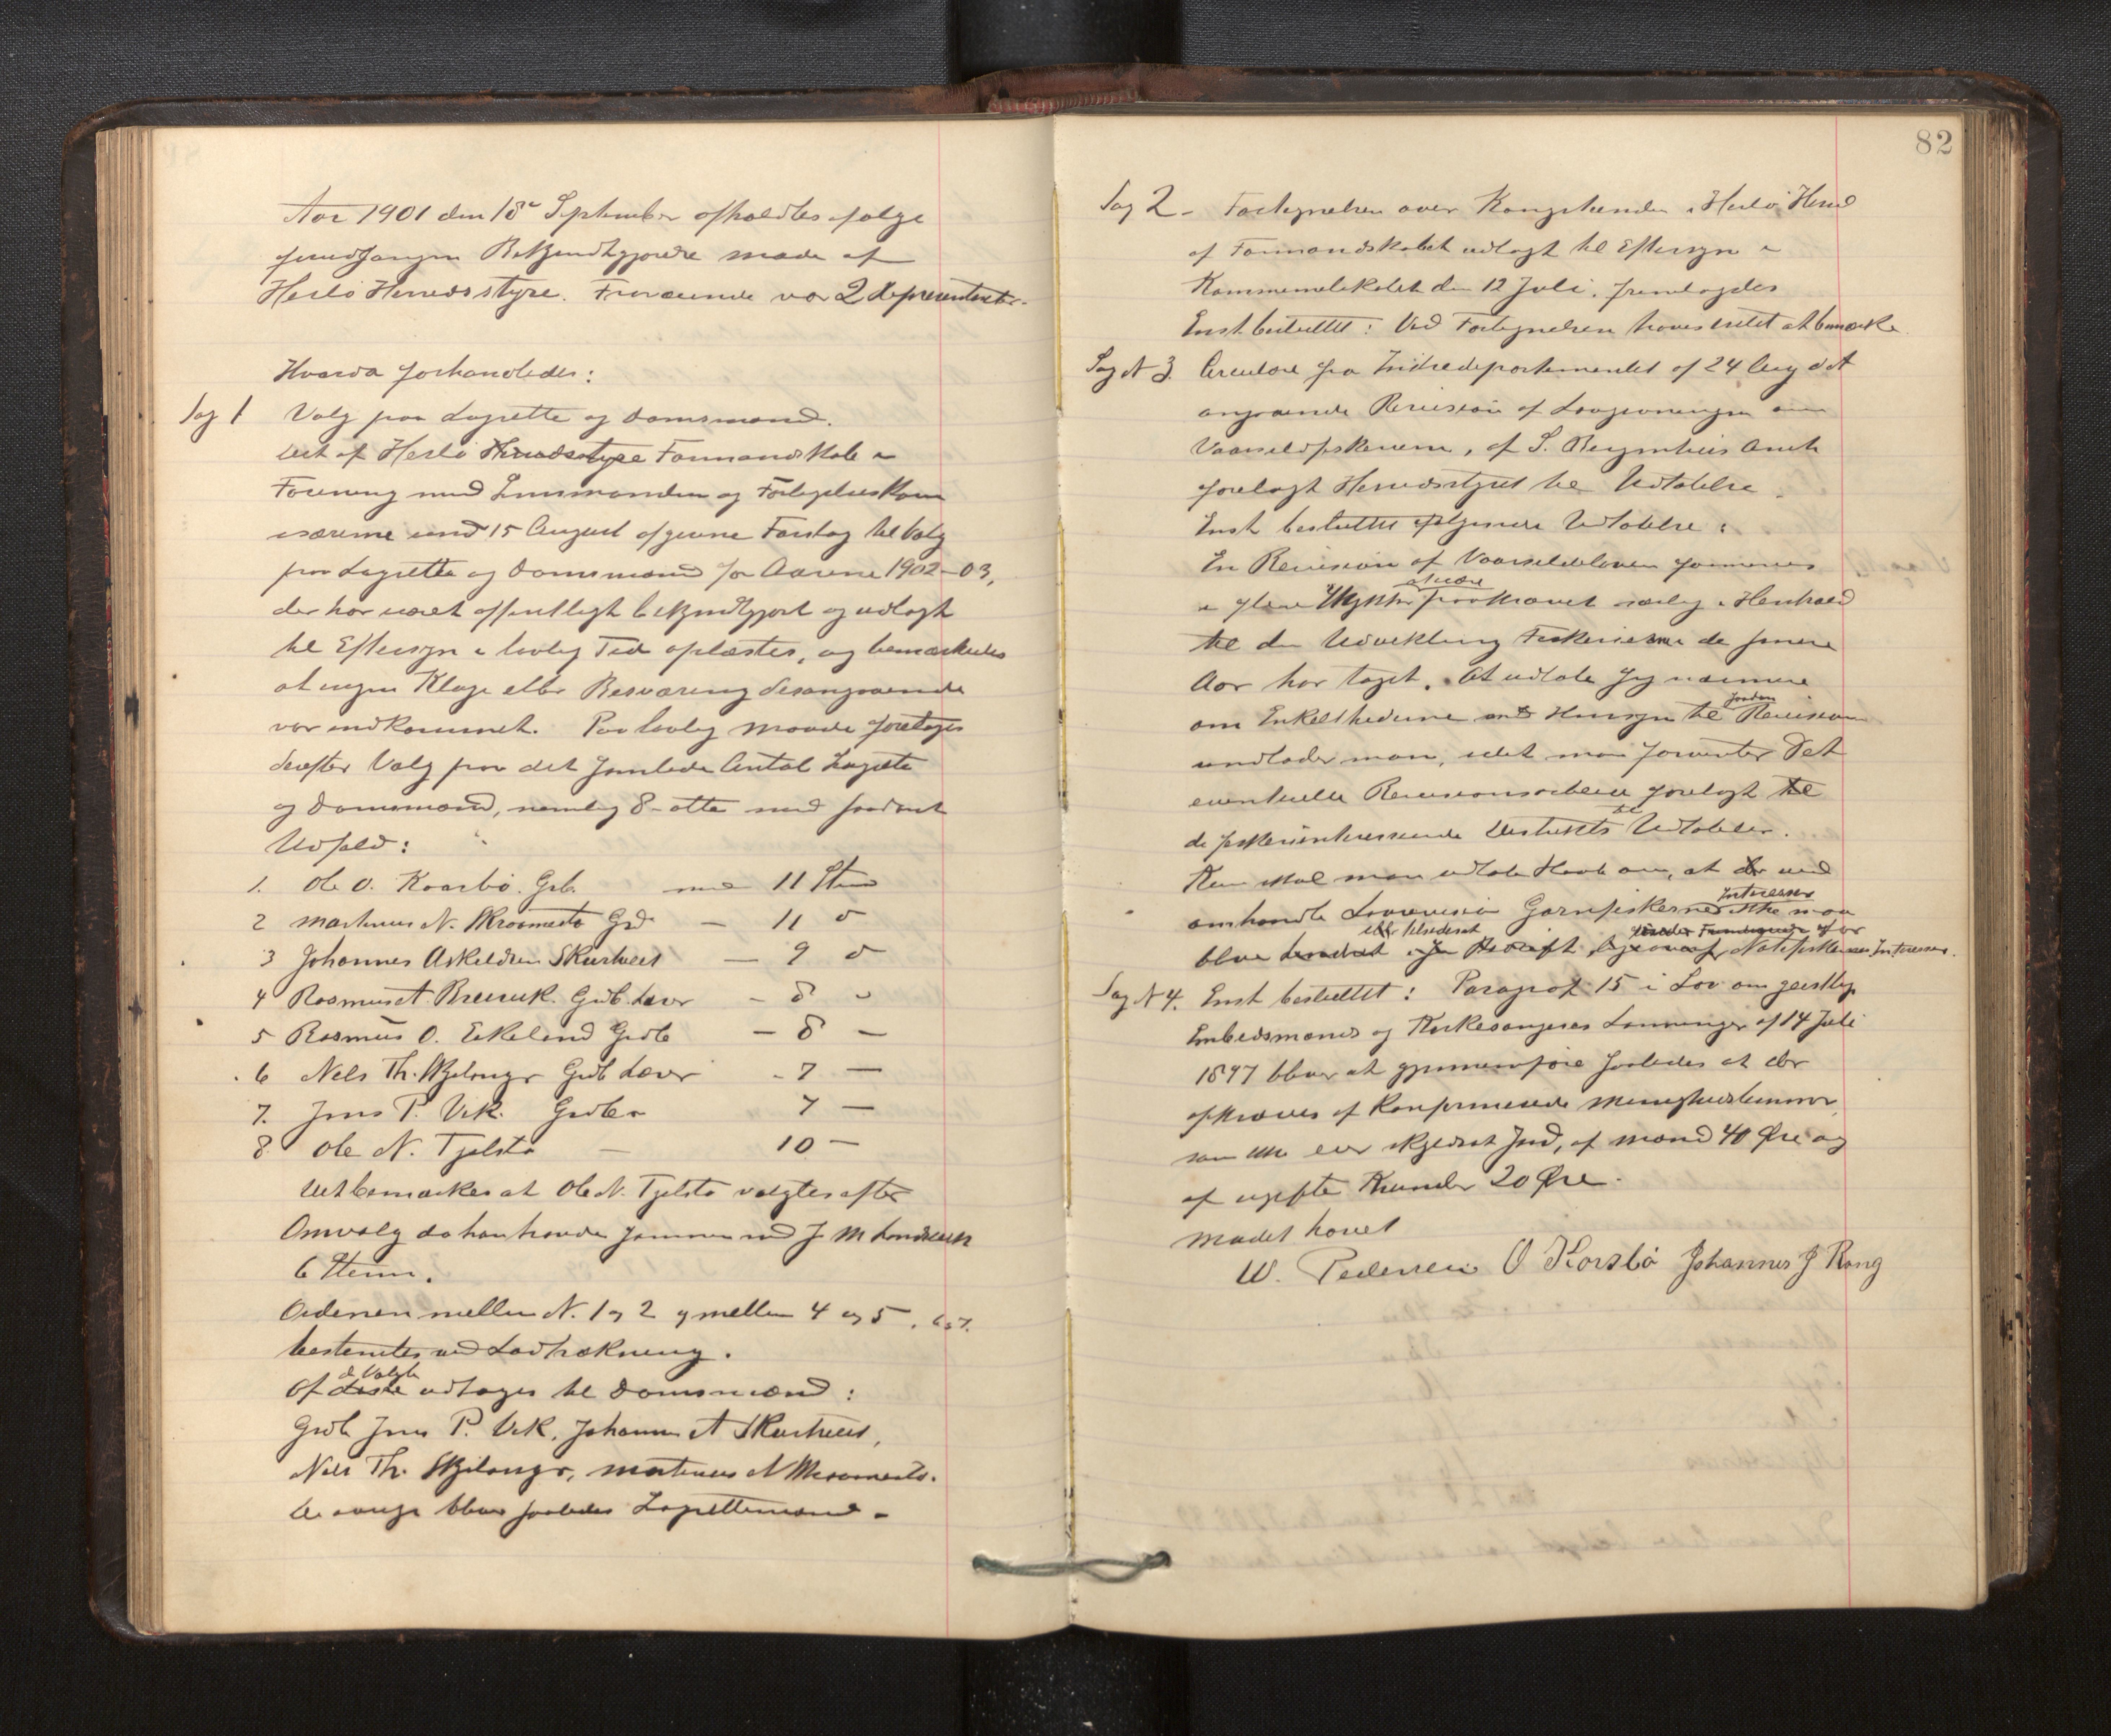 Aar 1901 den 18de September afholdtes ifølge
forudgangen Bekjendtgjørelse møde af
Herlö Herredsstyre. Fraværende var 2 Repræsentanter.
Hvorda forhandledes:
Sag 1 Valg paa Lagrette og Domsmænd.
Det af Herlö Herredsstyre Formandskab i
Forening med Lensmanden og Forligelseskom
isærerne under 15 August afgivne Forslag til Valg
paa Lagrette og Domsmænd for Aarene 1902-03,
der har været offentligt bekjendtgjort og udlagt
til Eftersyn i lovlig Tid oplæstes, og bemærkedes
at ingen Klage eller Besværing desangaaende
var indkommet. Paa lovlig Maade foretoges
derefter Valg paa det samlede Antal Lagrette
og Domsmænd, nemlig 8 - otte med saadant
Udfald:
1. Ole O. Kaarbö. Grb. med 11 Stem
2 Martinus N. Skraamestø Grd — 11 o
3 Johannes Askeldsen Skurtveit — 9 o
4 Rasmus A. Breivik. Grdb. Laver — 8 o
5 Rasmus O. Eikeland Grdb — 8 —
6 Nils Th. Skjelanger Grdb Laver - 7 —
7. Jens P. Vik. Grdbr 7 —
8 Ole N. Tjelstø — 10 —
Det bemærkes at Ole N. Tjelstø valgtes efter
Omvalg da han havde sammen med J M Landsvik
6 Stem.
Ordenen mellem N. 1 og 2 og mellem 4 og 5, 6 og 7.
bestemtes ved Lodtrækning.
de Valgte
Af disse udtoges til Domsmænd:
Grdb Jens P. Vik, Johannes A Skurtveit,
Nils Th. Skjelanger, Martinus N Skraamestø.
De øvrige bliver saaledes Lagrettemænd.
82
Sag 2 - Fortegnelsen over Kongstienden i Herlö Herred
af Formandskabet udlagt til Eftersyn i
Kommunelokalet den 12 Juli, fremlagdes
Enst besluttet: Ved Fortegnelsen haves intet at bemærke
Sag N 3. Circulære fra Indredepartementet af 24 Aug d A
angaaende Revision af Lovgivningen om
Vaarsildfiskerierne, af S. Bergenhus Amt
forelagt Herredsstyret til Udtalelse.
Enst besluttet følgende Udtalelse:
En Revision af Vaarsildloven formenes
at være
i flere Stykker paakrævet særlig i Henhold
til den Udvikling Fiskerierne de senere
Aar har taget. At udtale sig nærmere
saadan
om Enkelthederne med Hensyn til Revision
undlader man, idet man forventer det
eventuelle Revisionsarbeide forelagt til
til
de fiskeriinteresserede Distrikts Udtalelse.
Kun skal man udtale Haab om, at der ved
Interesser
omhandlede Lovrevision Garnfiskernes ikke maa
eller tilsidesat
blive for Notefiskernes Interesser.
Sag N 4. Enst besluttet: Paragraf 15 i Lov om geistlige
Embedsmænds og Kirkesangeres Lønninger af 14 Juli
1897 bliver at gjennemføre saaledes at der
opkræves af konfirmerede Menighedslemmer,
som ikke eier skyldsat Jord, af Mænd 40 Øre og
af ugifte Kvinder 20 Øre.
Mødet hævet
W. Pedersen O Korsbö Johannes J Rong